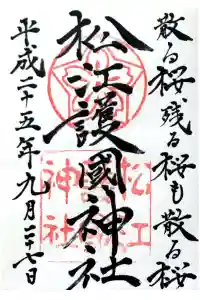 散る桜残る桜も散る桜
松江護國神社
平成二十五年九月二十七日
松江
神社